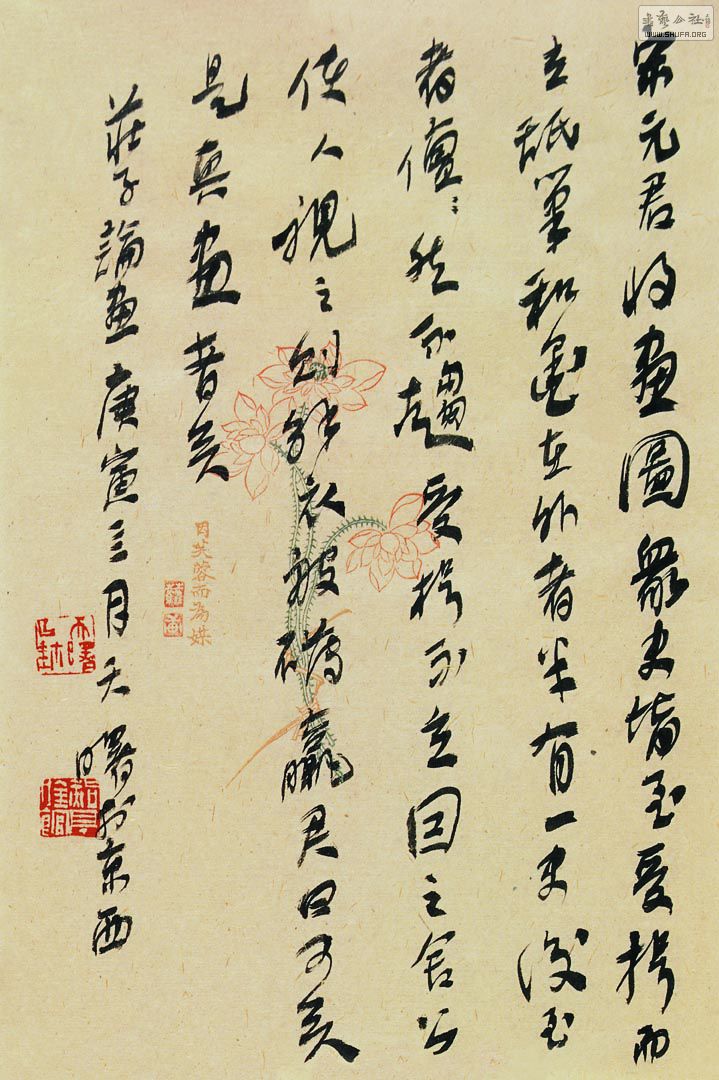 宋元君将畫圖眾史皆至受揖而
立舐筆和墨在外者半有一史後至
者儃〻然不趨受揖不立因之舍公
使人視之則解衣般礴臝君曰可矣
是真畫者矣
莊子論畫庚寅三月天曙於京西
因芙蓉而為媒
WWW.SHUFA.ORG